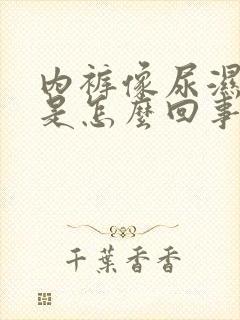 內褲像尿濕
是怎麼回事
千葉香香